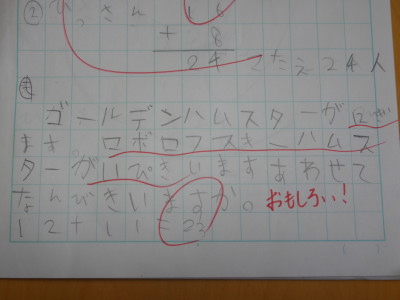 ② ひっさん
+ 8
24 こたえ24人
ゴールデンハムスターが12
ます ロボロフスキーハムス
ターが11ぴきいますあわせて
なんびきいますか。 おもしろい!
12+11=23